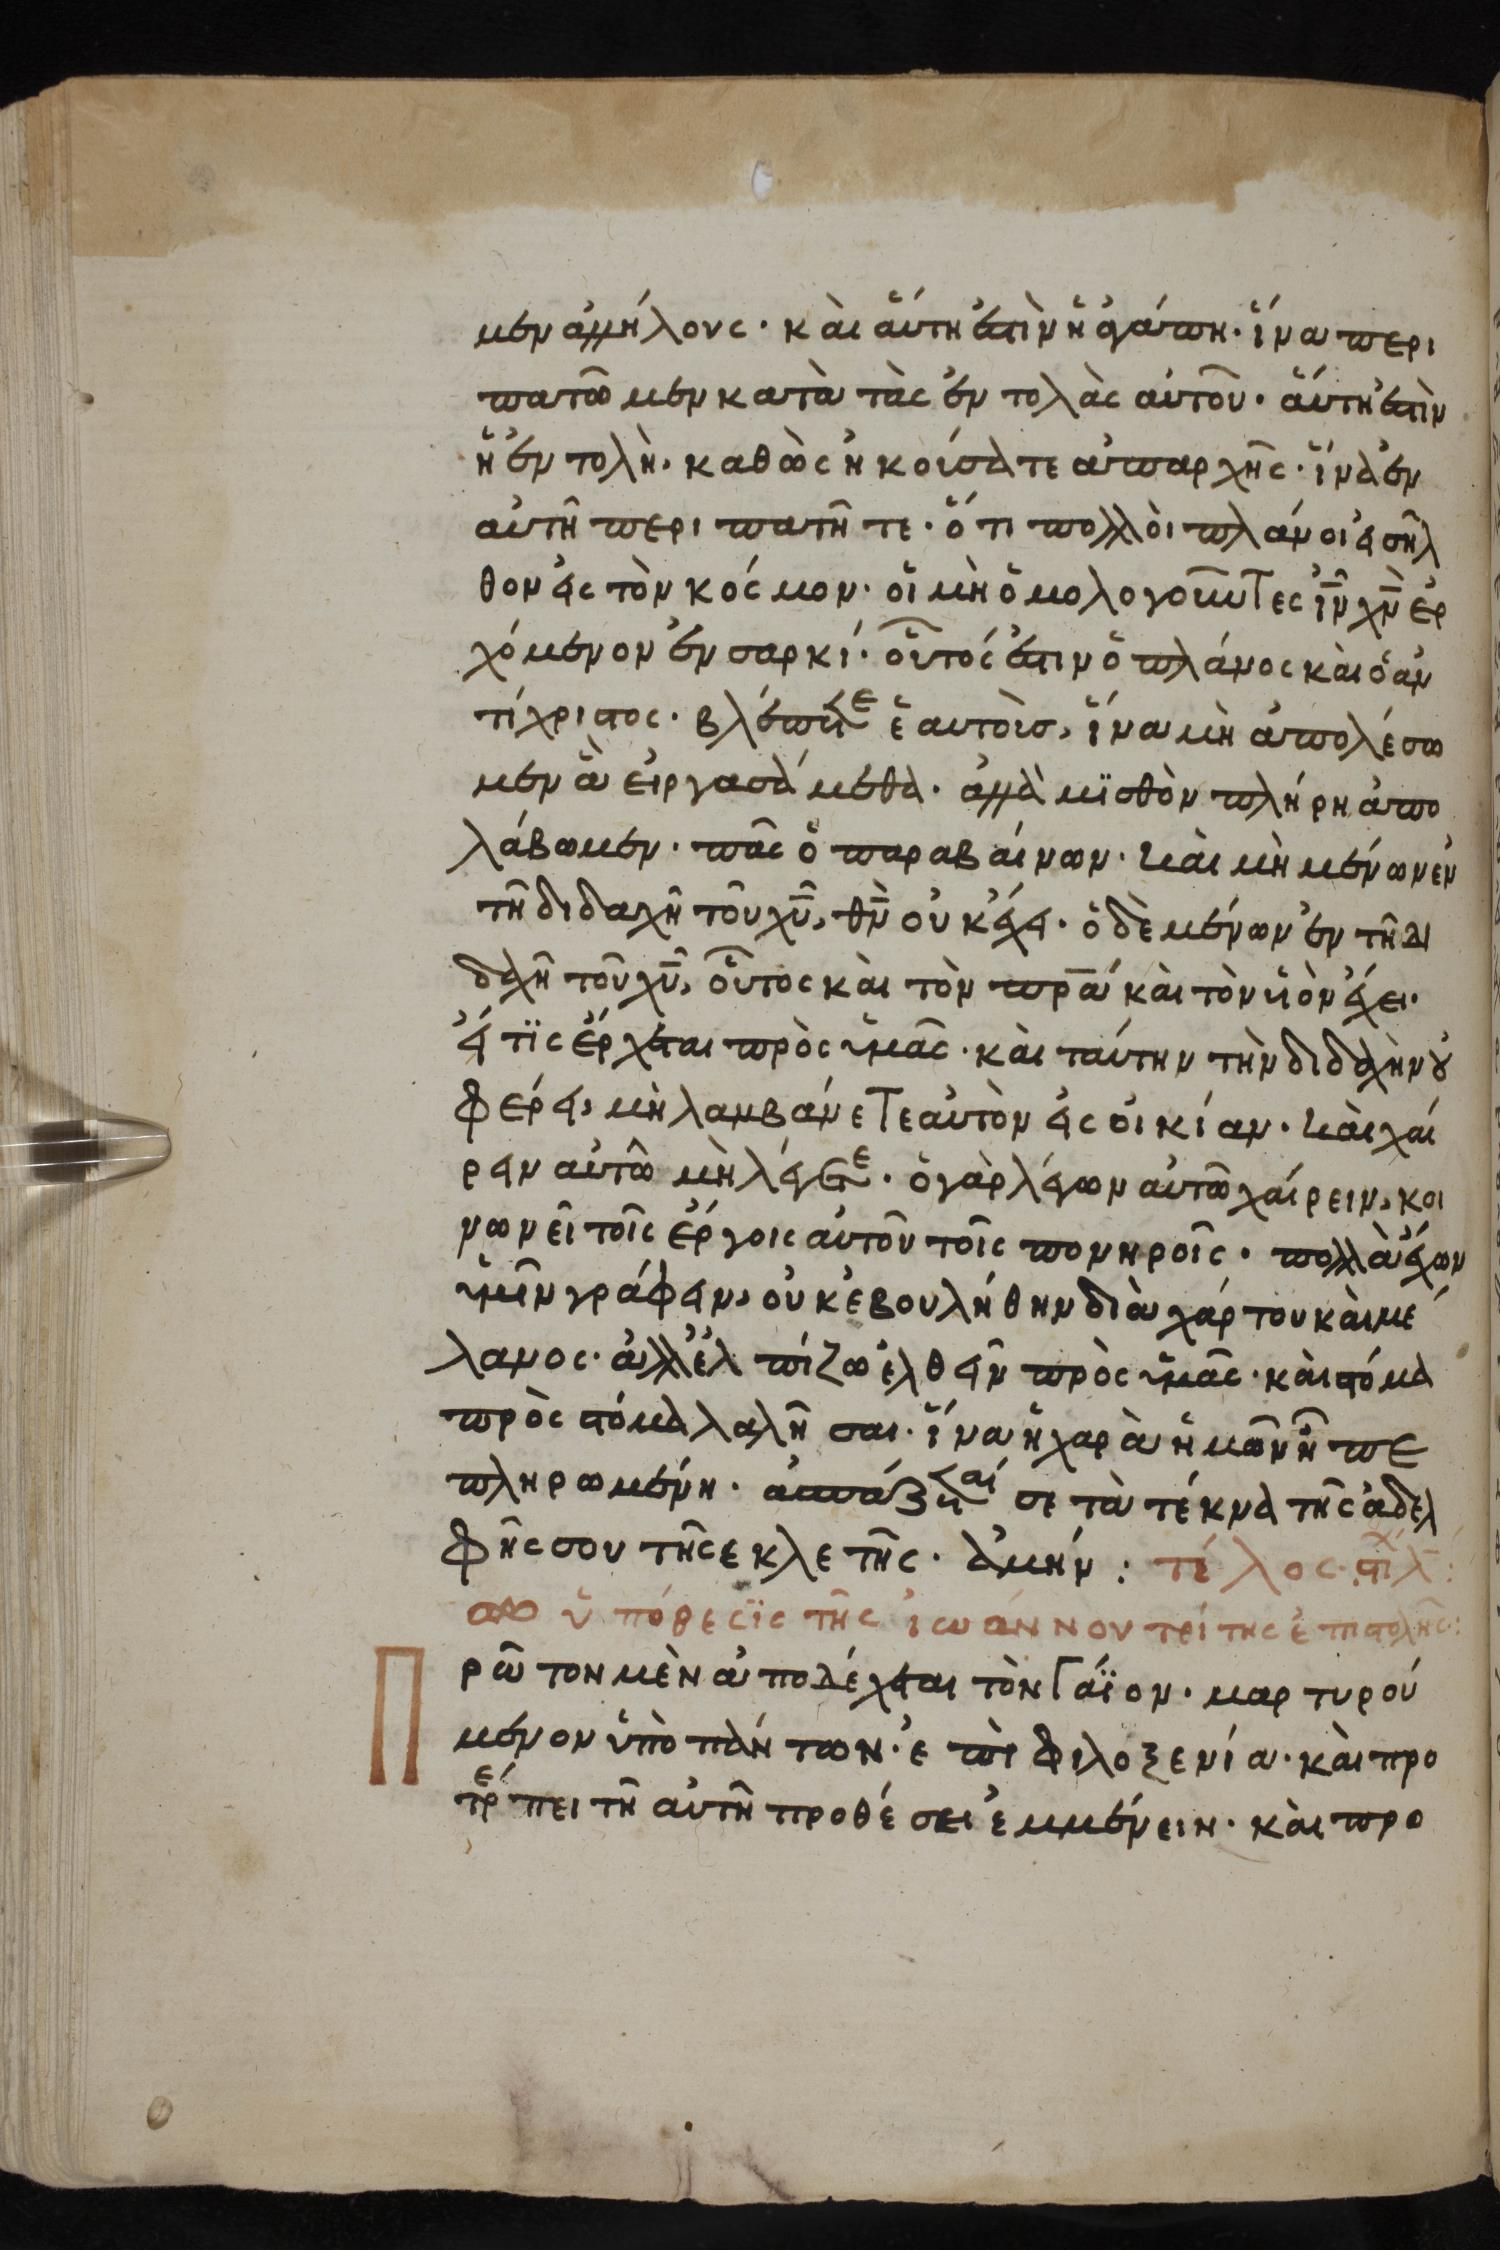 μεν ἀλλήλους· καὶ αὕτη ἐστὶν ἡ ἀγάπη· ἵνα περι
πατῶμεν κατὰ τὰς ἐντολὰς αὐτοῦ· αὕτη ἐστὶν
ἡ ἐντολὴ, καθὼς ἠκούσατε ἀπαρχῆς· ἵνα ἐν
αὐτῆ περιπατῆτε· ὅτι πολλοὶ πλάνοι εἰσῆλ
θον εἰς τὸν κόσμον· οἱ μὴ ὁμολογοῦντες ἰ̅ν̅ χ̅ν̅ ἐρ
χόμενον ἐν σαρκί· οὗτός ἐστιν ὁ πλάνος καὶ ὁ ἀν
τίχριστος· βλέπετε ἑαυτοὶσ, ἵνα μὴ ἀπολέσω
μεν ἃ εἰργασάμεθα· ἀλλὰ μϊσθὸν πλήρη ἀπο
λάβωμεν· πᾶς ὁ παραβαίνων· καὶ μὴ μένων ἐν
τῆ διδαχῆ τοῦ χ̅υ̅, θ̅ν̅ οὐκ ἔχει· ὁ δὲ μένων ἐν τῆ δι
δαχῆ τοῦ χ̅υ̅, οὗτος καὶ τὸν π̅ρ̅α̅ καὶ τὸν υἱὸν ἔχει·
εἴ τϊς ἔρχεται πρὸς ὑμᾶς· καὶ ταύτην τὴν διδαχὴν οὐ
φέρει, μὴ λαμβάνετε αὐτὸν εἰς οἰκίαν· καὶ χαί
ρειν αὐτῶ μὴ λέγετε· ὁ γὰρ λέγων αὐτῶ χαίρειν, κοι
νωνεῖ τοῖς ἔργοις αὐτοῦ τοῖς πονηροῖς· πολλὰ ἔχων
ὑμῖν γράφειν, οὐκ ἐβουλήθην διὰ χάρτου καὶ μέ
λανος· ἀλλ' ἐλπίζω ἐλθεῖν πρὸς ὑμᾶς· καὶ στόμα
πρὸς στόμα λαλῆσαι· ἵνα ἡ χαρὰ ἡμῶν ἦ πε
πληρωμένη· ἀσπάζεταί σε τὰ τέκνα τῆς ἀδελ
φῆς σου τῆς εκλετῆς· ἀμήν: τέλος· στιχ λ̅:
ὑπόθεσϊς τῆς ἰωάννου τρίτης ἐπιστολῆς:
Πρῶτον μὲν ἀποδέχεται τὸν Γάϊον· μαρτυρού
μενον ὑπὸ πάντων· ἐπὶ φιλοξενία· καὶ προ
τρέπει τῆ αὐτῆ προθέσει ἐμμένειν· καὶ προ